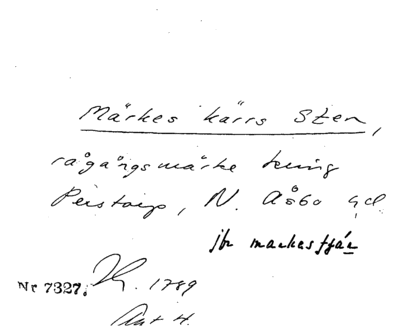 Märkes kärrs Sten,
rågångsmärke kring
Perstorp, N. Åsbo hd.
jfr markasfjär
Nr 7327. 1789
Akt 4.